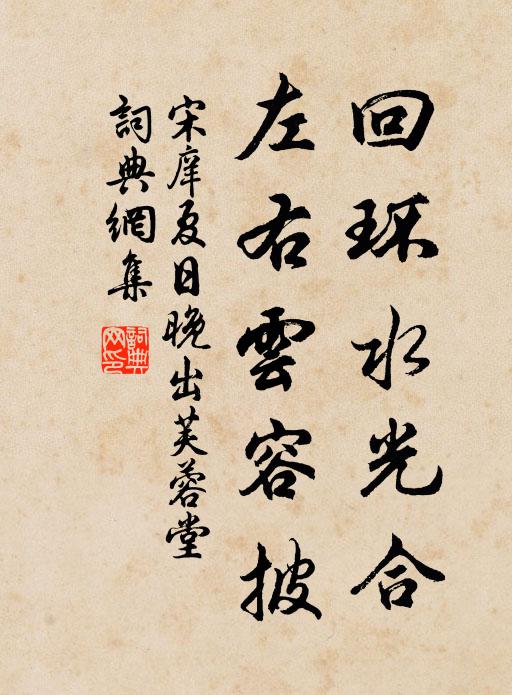 回环水光合
左右雲容披
宋庠夏日晚出芙蓉堂
詞典網集
詞典網印